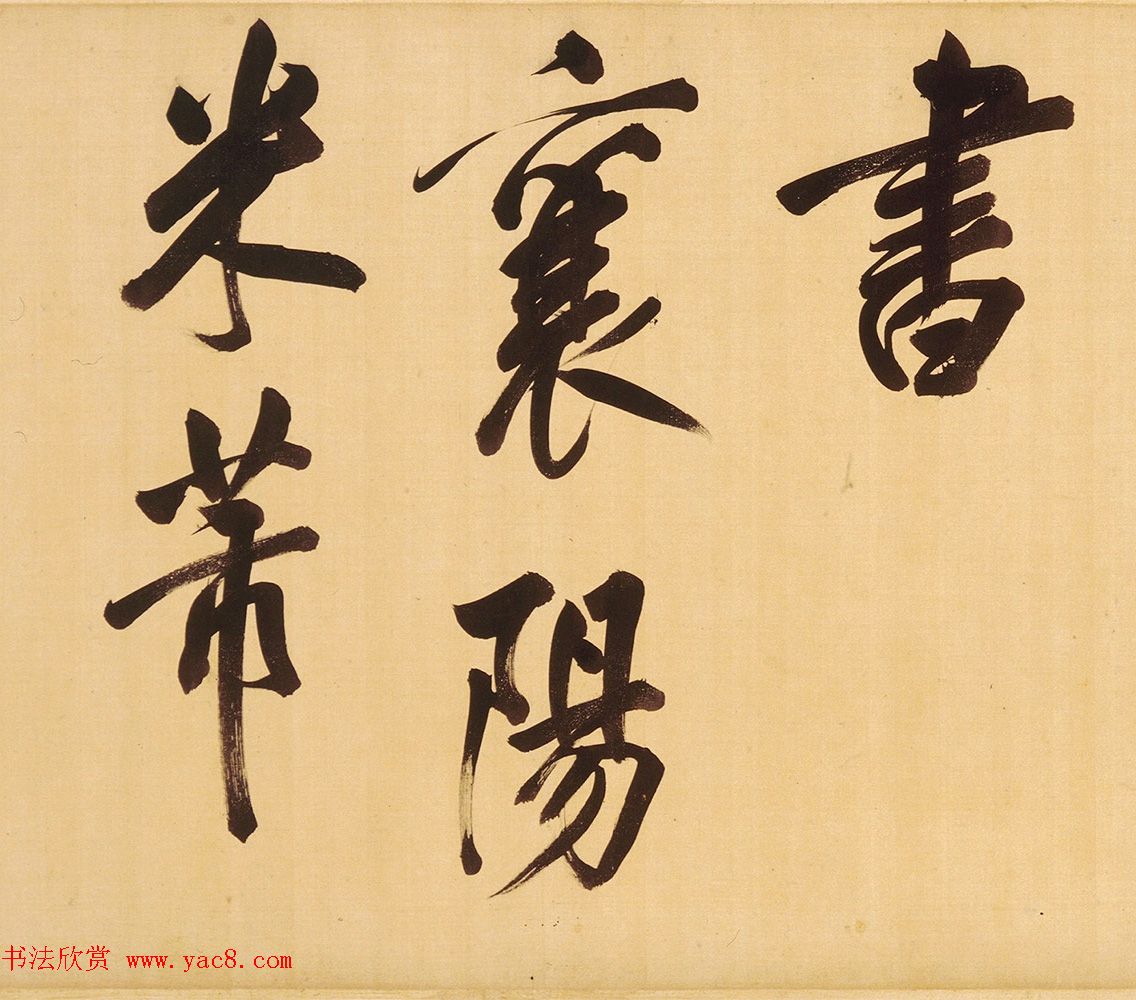 書
襄陽
米芾
书法欣赏 www.yac8.com